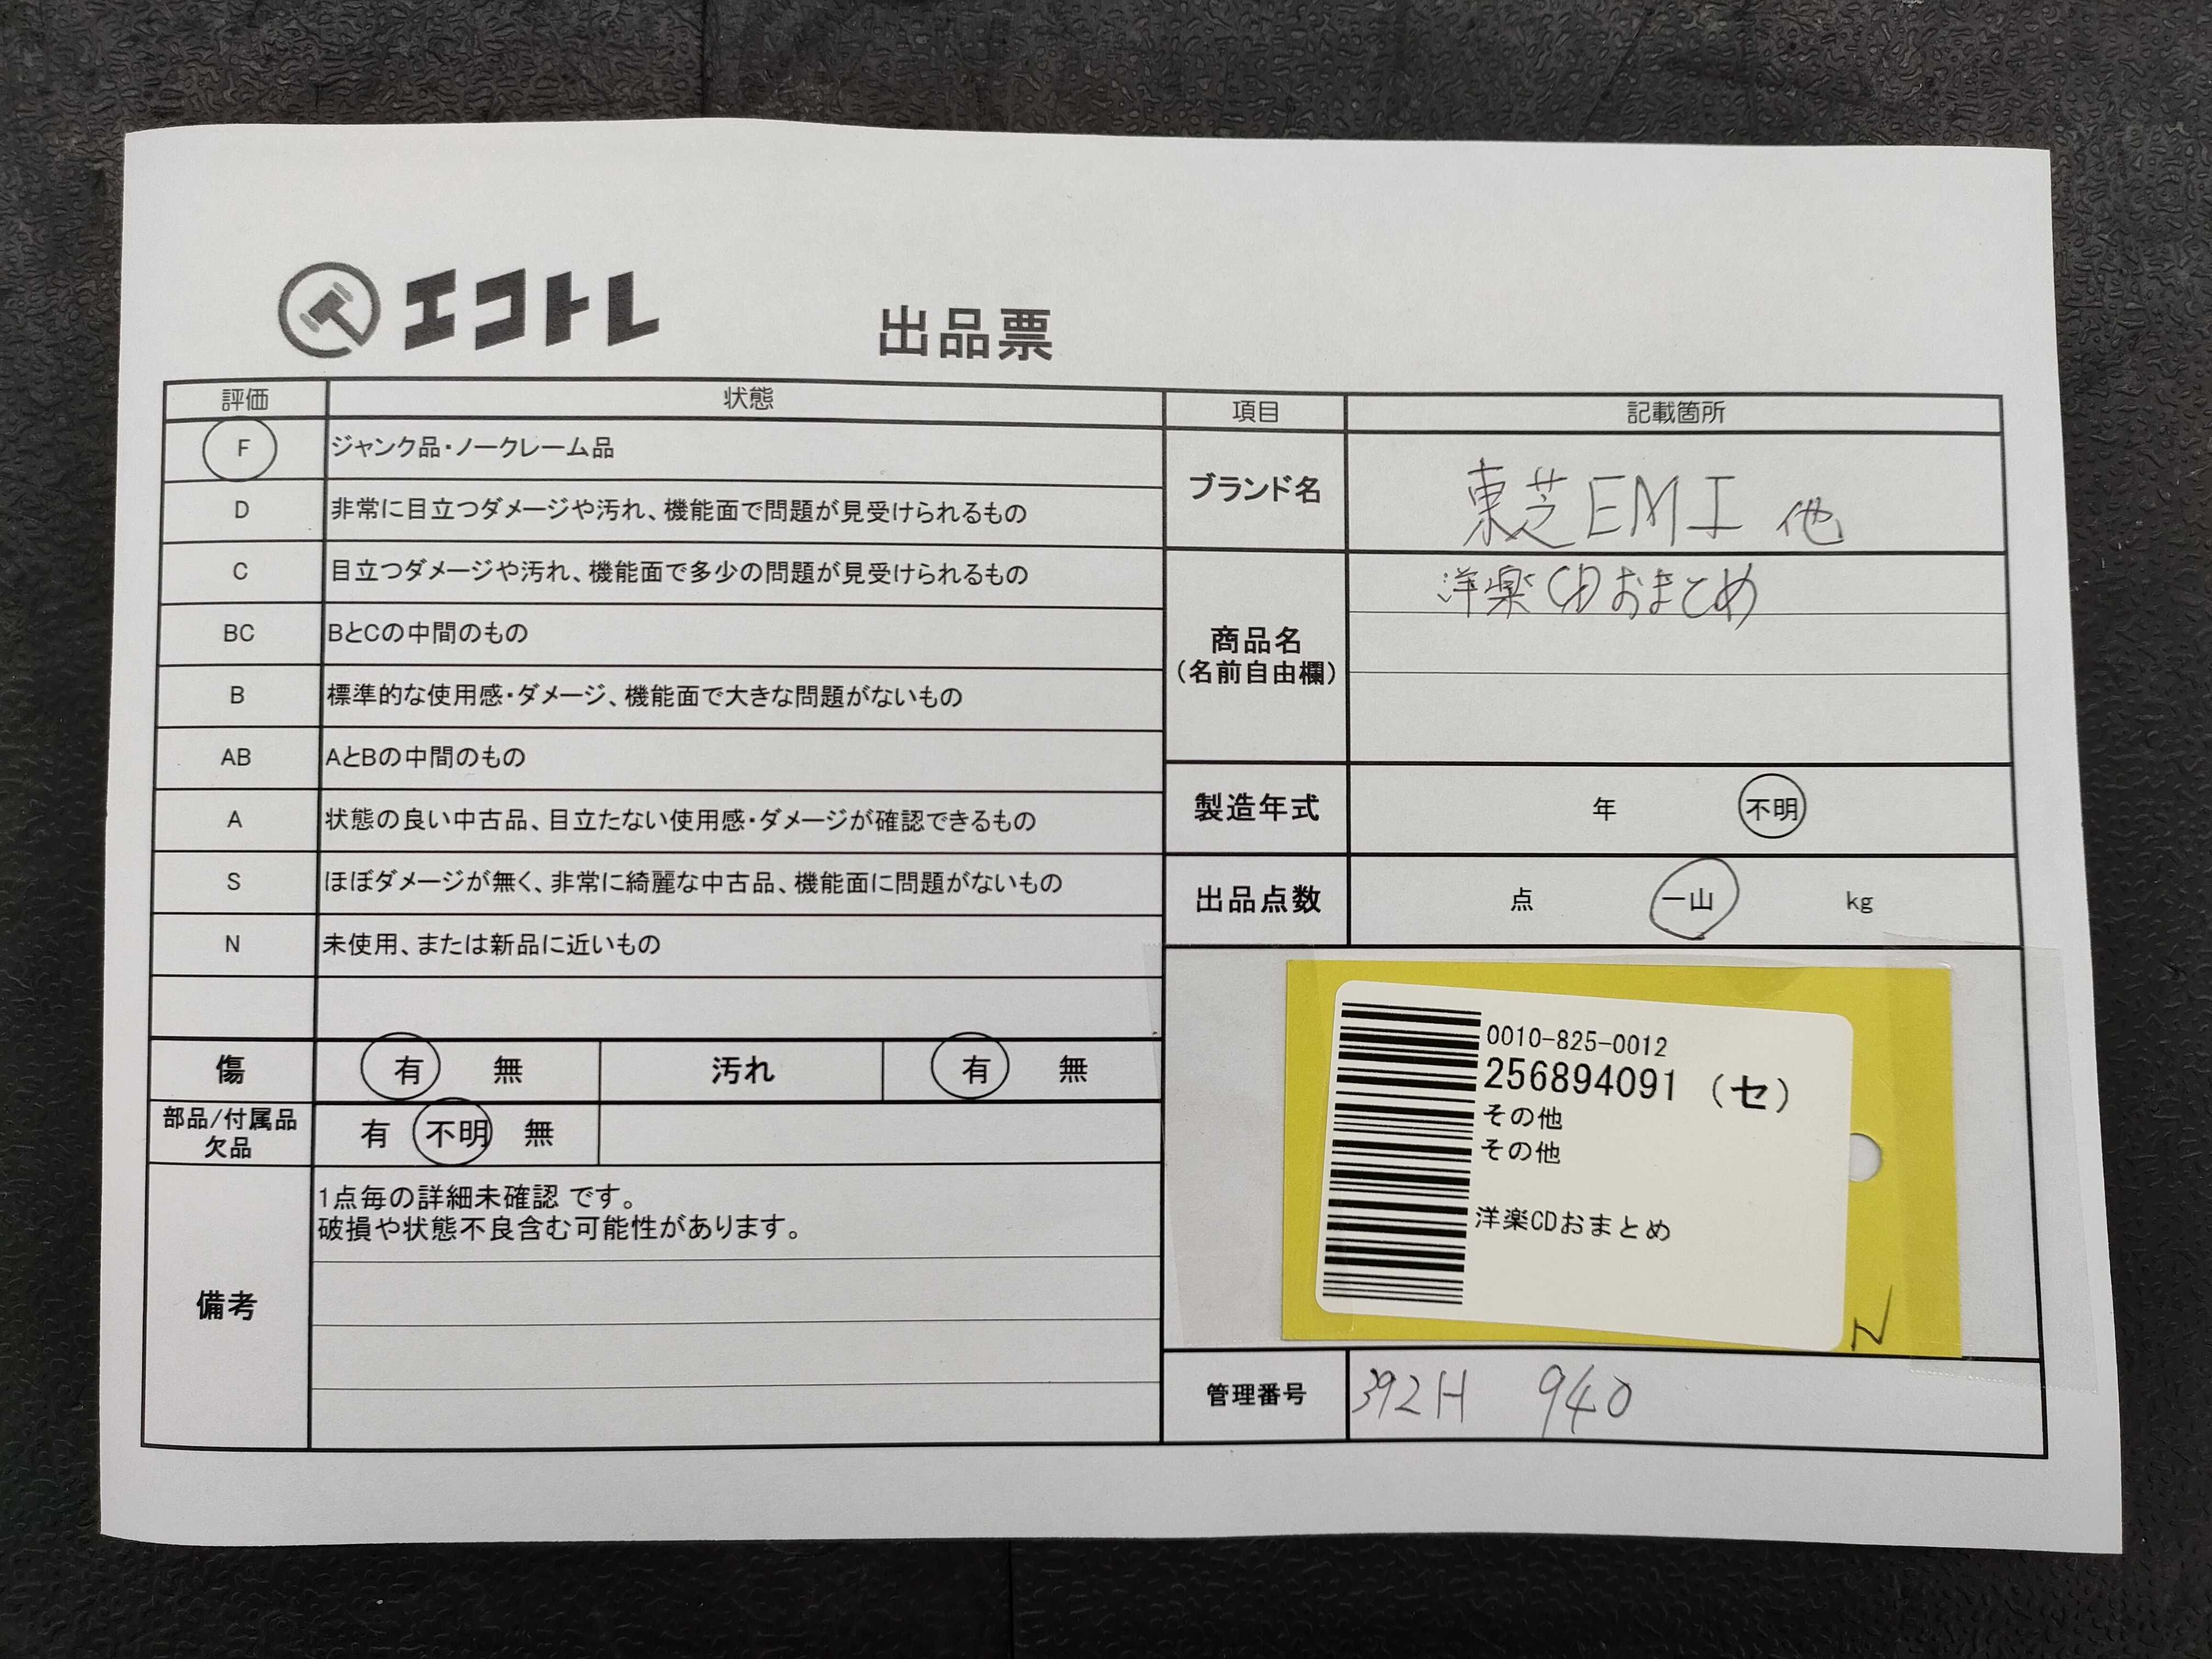 エコトレ
出品票
評価 状態
F ジャンク品・ノークレーム品
D 非常に目立つダメージや汚れ、機能面で問題が見受けられるもの
C 目立つダメージや汚れ、機能面で多少の問題が見受けられるもの
BC BとCの中間のもの
B 標準的な使用感・ダメージ、機能面で大きな問題がないもの
AB AとBの中間のもの
A 状態の良い中古品、目立たない使用感・ダメージが確認できるもの
S ほぼダメージが無く、非常に綺麗な中古品、機能面に問題がないもの
N 未使用、または新品に近いもの
傷 有 無 汚れ 有 無
部品/付属品
欠品
有 不明 無
備考
1点毎の詳細未確認 です。
破損や状態不良含む可能性があります。
項目 記載箇所
ブランド名 東芝EMI 他
商品名
(名前自由欄)
洋楽CDおまとめ
製造年式 年 不明
出品点数 点 一山 kg
0010-825-0012
256894091 (セ)
その他
その他
洋楽CDおまとめ
N
管理番号 392H 940